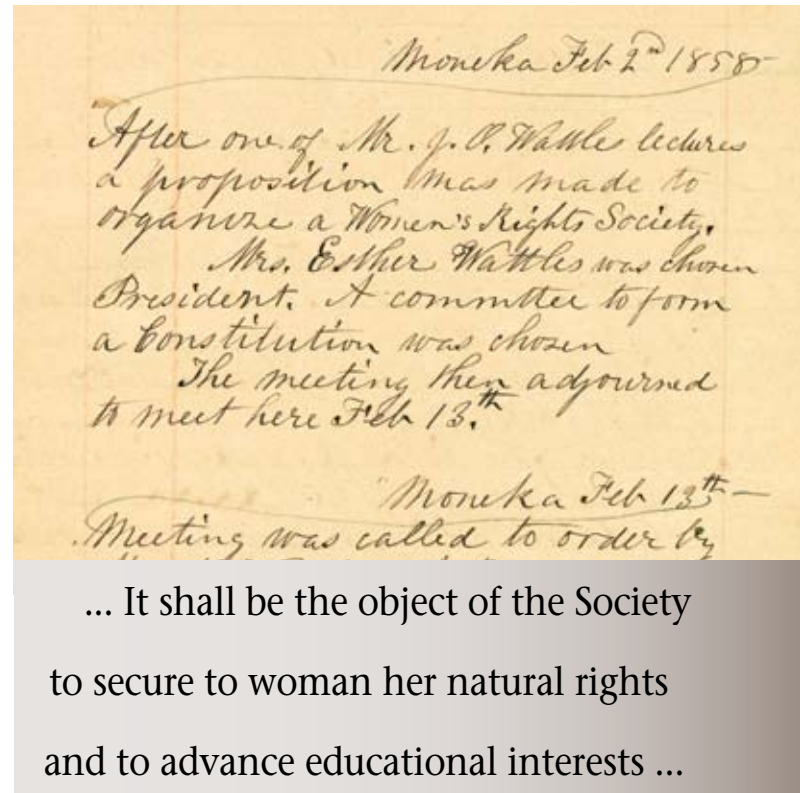 Moneka Feb 2nd 1858
After one of Mr. J. O. Wattles lectures
a proposition was made to
organize a Women's Rights Society.
Mrs. Esther Wattles was chosen
President. A committee to form
a Constitution was chosen
The meeting then adjourned
to meet here Feb 13.th
Moneka Feb 13th —
Meeting was called to order by
... It shall be the object of the Society
to secure to woman her natural rights
and to advance educational interests ...